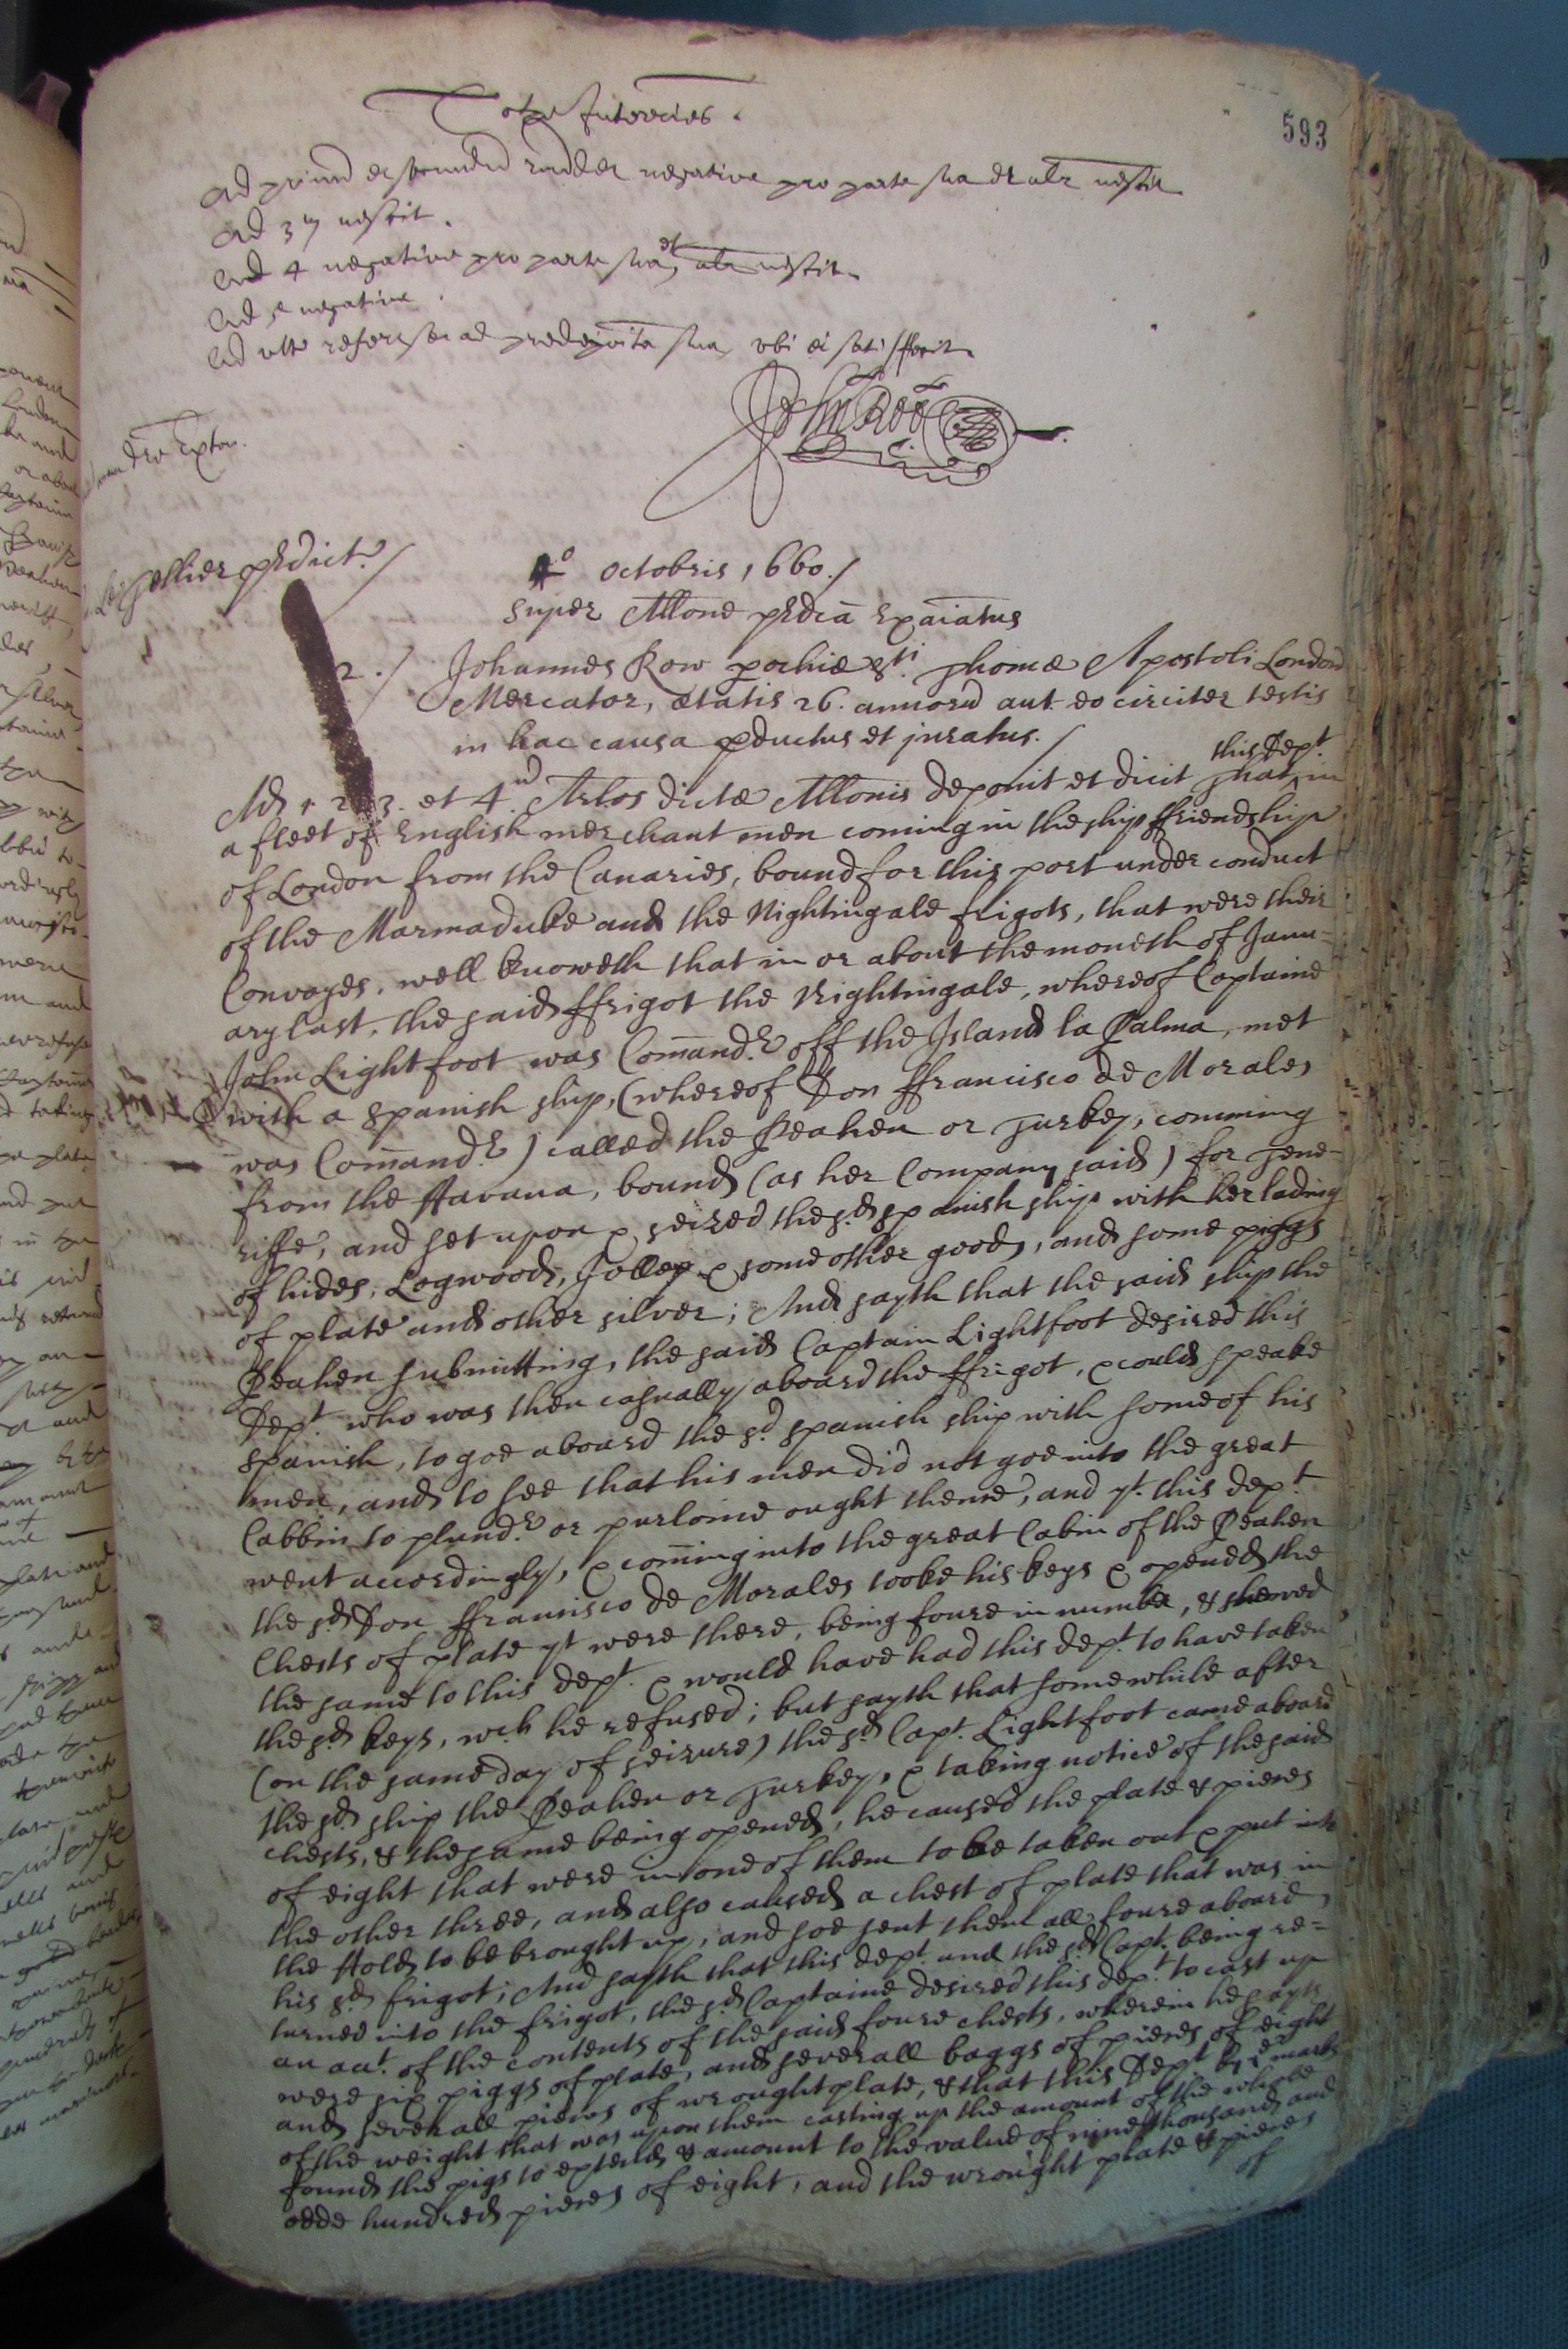 593
To the Interries.
Ad primu et secundu rndet negative pro parte sua et alr nescit
Ad 3 m nescit.
Ad 4 negative pro parte sua et alr nescit.
Ad 5 negative.
Ad ult refert se ad predeposita sua, ubi ei satisfecit.
dro Exton.
John Roe
4º octobris 1660./
prdict./
super Allone prdca Exaiatus
2./ Johannes Row pochiæ Sti. Thomæ Apostoli London
Mercator, ætatis 26. annoru aut eo circiter testis
in hac causa pductus et juratus./
Ad 1. 2. 3. et 4. Arlos dictæ Allonis deponit et dicit That this Dept. in
a fleet of English merchant men coming in the ship ffriendship
of London from the Canaries, bound for this port under conduct
of the Marmaduke and the Nightingale frigots, that were their
Convoyes, well knoweth that in or about the moneth of Janu=
ary last. the said ffrigot the Nightingale, whereof Captaine
John Lightfoot was Comandr. off the Island la Palma, met
with a Spanish ship, (whereof Don ffrancisco de Morales
was Comandr.) called the Peahen or Turkey, comming
from the Havana, bound (as her Company said) for Tene-
riffe, and set upon & seized the sd. spanish ship with her lading
of hides, Logwood, Jollep & some other goods, and some piggs
of plate and other silver; And sayth that the said ship the
Peahen submitting, the said Captain Lightfoot desired this
Dept. who was then casually aboard the ffrigot, & could speake
spanish, to goe aboard the sd. spanish ship with some of his
men, and to see that his men did not goe into the great
Cabbin to plundr. or purloine ought thence, and yt. this dept.
went accordingly, & coming into the great Cabin of the Peahen
the sd. Don ffrancisco de Morales tooke his keys & opened the
Chests of plate yt were there, being foure in number, & shewed
the same to this dept. & would have had this dept. to have taken
the sd. keys, wch he refused; but sayth that somewhile after
(on the same day of seizure) the sd. Capt. Lightfoot came aboard
the sd. ship the Peahen or Turkey, & taking notice of the said
chests, & the same being opened, he caused the plate & pieces
of eight that were in one of them to be taken out & put into
the other three, and also caused a chest of plate that was in
the Hold to be brought up, and soe sent them all foure aboard
his sd. frigot; And sayth that this dept. and the sd. Capt. being re=
turned into the frigot, the sd. Captaine desired this dept. to cast up
an aat. of the contents of the said foure chests, wherein he sayts
were six piggs of plate, and severall baggs of pieces of eight
and severall pieces of wrought plate, & that this Dept by ye marks
of the weight that was upon them casting up the amount of the whole
found the pigs to extend & amount to the value of nine thousand and
odde hundred pieces of eight, and the wrought plate & pieces
of